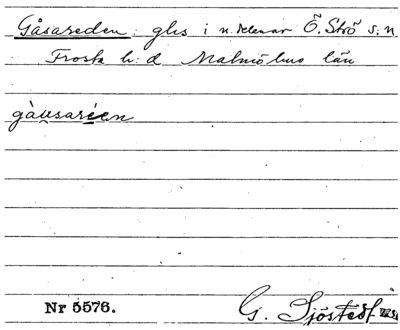 Gåsareden: ghs i n. delen av Ö. Strö s:n
Frosta h:d Malmöhus län
gàu̯sarèen
Nr 5576. G. Sjöstedt